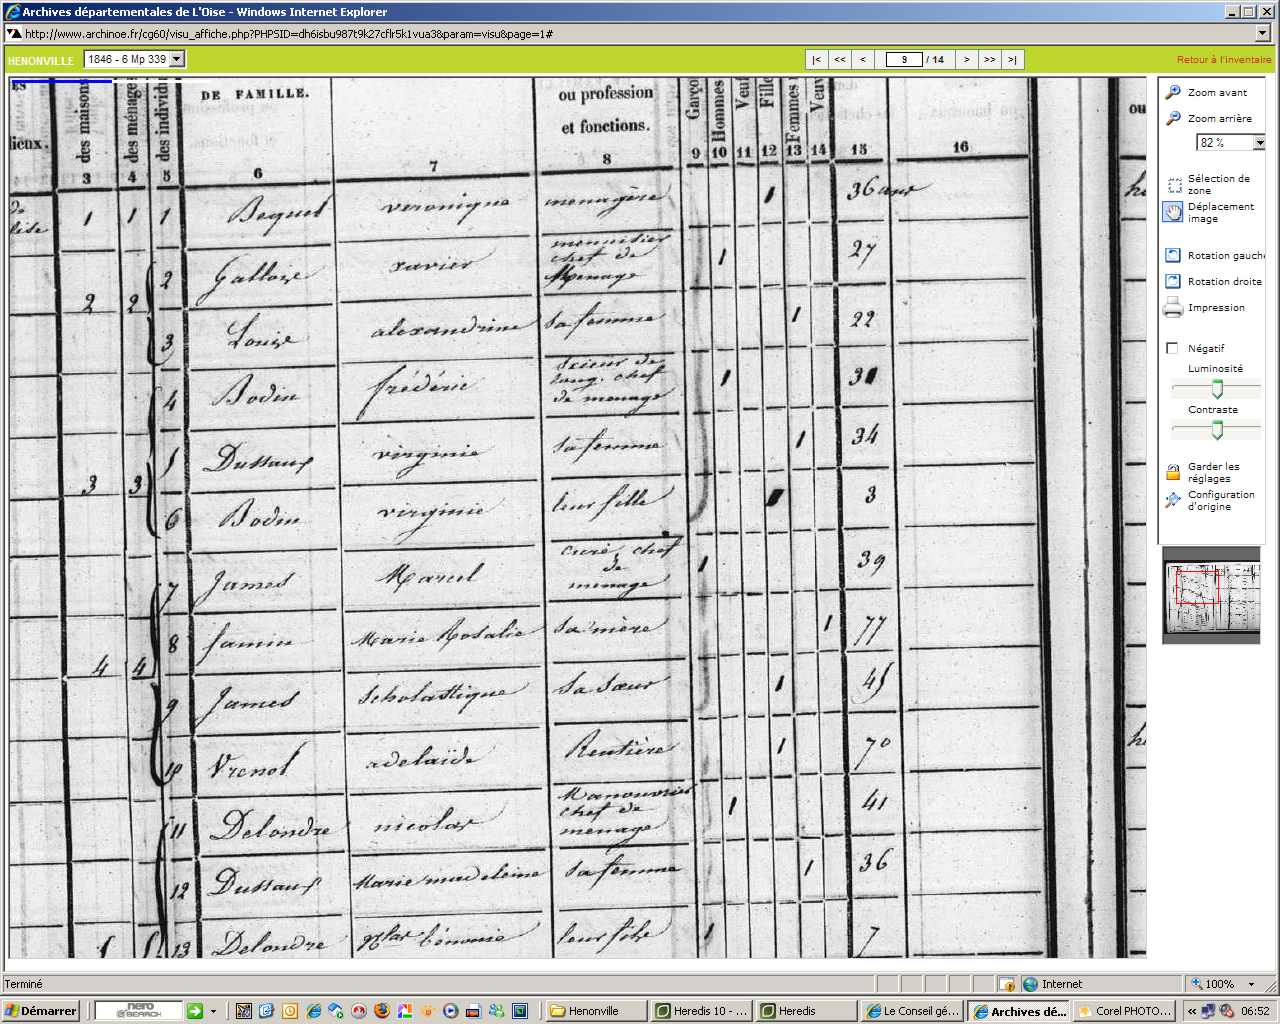 Archives départementales de L'Oise - Windows Internet Explorer
http://www.archinoe.fr/cg60/visu_affiche.php?PHPSID=dh6isbu987t9k27cflr5k1vua3&param=visu&page=1#
HENONVILLE 1846 - 6 Mp 339 |< << < 9 / 14 > >> >| Retour à l'inventaire
lieux. des maisons des ménages des individus DE FAMILLE. ou profession et fonctions. Garçons Hommes Veufs Filles Femmes Veuves
3 4 5 6 7 8 9 10 11 12 13 14 15 16
1 1 1 Bequel veronique menagère 1 36 ans
2 Galloix xavier menuisier chef de Menage 1 27
2 2
3 Louise alexandrine sa femme 1 22
4 Bodin frédéric Scieur de long. chef de menage 1 31
5 Dussaux virginie sa femme 1 34
3 3
6 Bodin virginie leur fille 1 3
7 James Marcel curé, chef de menage 1 39
8 famin Marie Rosalie Sa mère 1 77
4 4
9 James Scholastique Sa Sœur 1 45
10 Vrenol adelaïde Rentière 1 70
11 Delondre nicolas Manouvrier chef de menage 1 41
12 Dussaux Marie madeleine sa femme 1 36
5 5 13 Delondre leur fils 1 7
Zoom avant
Zoom arrière
82 %
Sélection de
zone
Déplacement
image
Rotation gauche
Rotation droite
Impression
Négatif
Luminosité
Contraste
Garder les
réglages
Configuration
d'origine
Terminé Internet 100%
Démarrer nero SEARCH Henonville Heredis 10 - ... Heredis Le Conseil gé... Archives dé... Corel PHOTO... 06:52